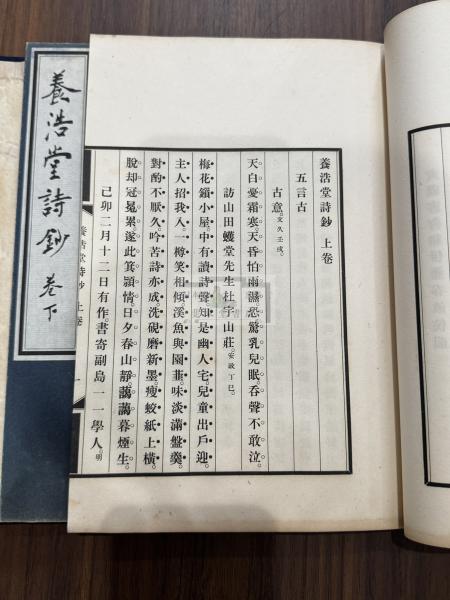 養浩堂詩鈔 卷下
養浩堂詩鈔 上卷
五言古
古意。文久壬戌。
天白憂霜寒。天昏怕雨濕。恐驚乳兒眠。呑聲不敢泣。
訪山田蠖堂先生杜宇山莊。安政丁巳。
梅花鎖小屋。中有讀詩聲。知是幽人宅。兒童出戶迎。
主人招我入。一樽笑相傾。溪魚與園韮。味淡滿盤羹。
對酌不厭久。吟苦詩亦成。洗硯磨新墨。瘦蛟紙上橫。
脫却冠冕累。遂此箕潁情。日夕春山靜。藹藹暮煙生。
己卯二月十二日有作。書寄副島一一學人。明
養浩堂詩鈔 上卷
一